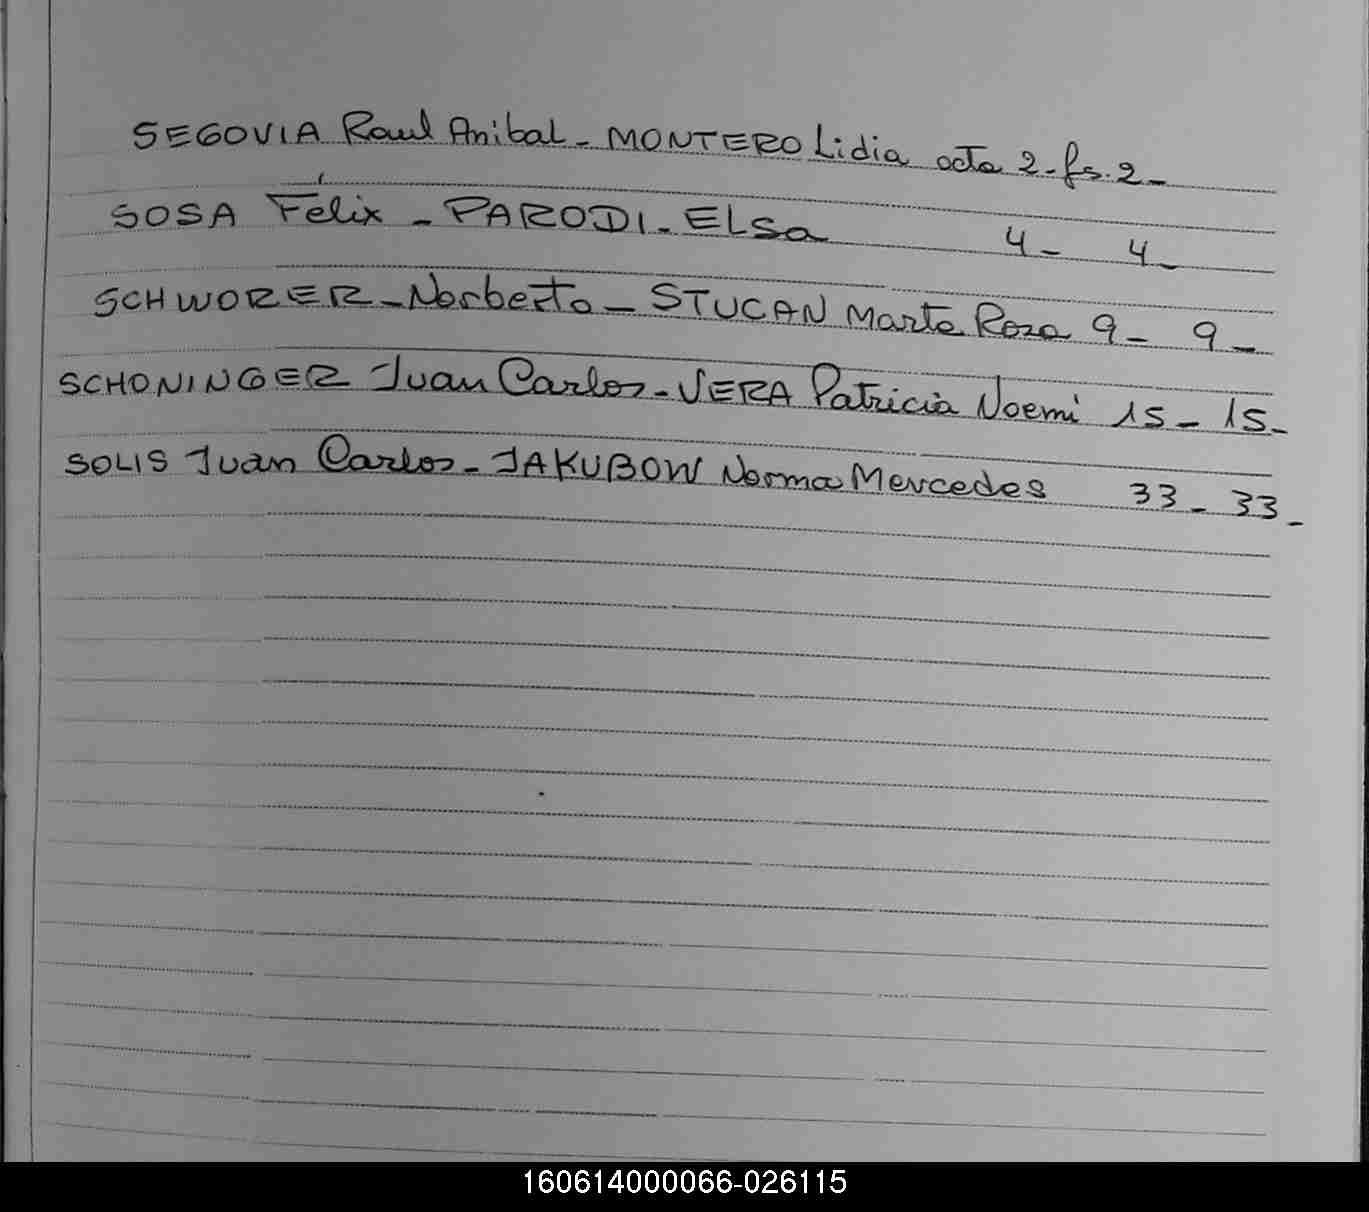 SEGOVIA Raul Anibal - MONTERO Lidia acta 2 - fs. 2 -
SOSA Félix - PARODI - ELSa 4 - 4 -
SCHWORER - Norberto - STUCAN Marta Rosa 9 - 9 -
SCHONINGER Juan Carlos - VERA Patricia Noemi 15 - 15 -
SOLIS Juan Carlos - JAKUBOW Norma Mercedes 33 - 33 -
160614000066-026115